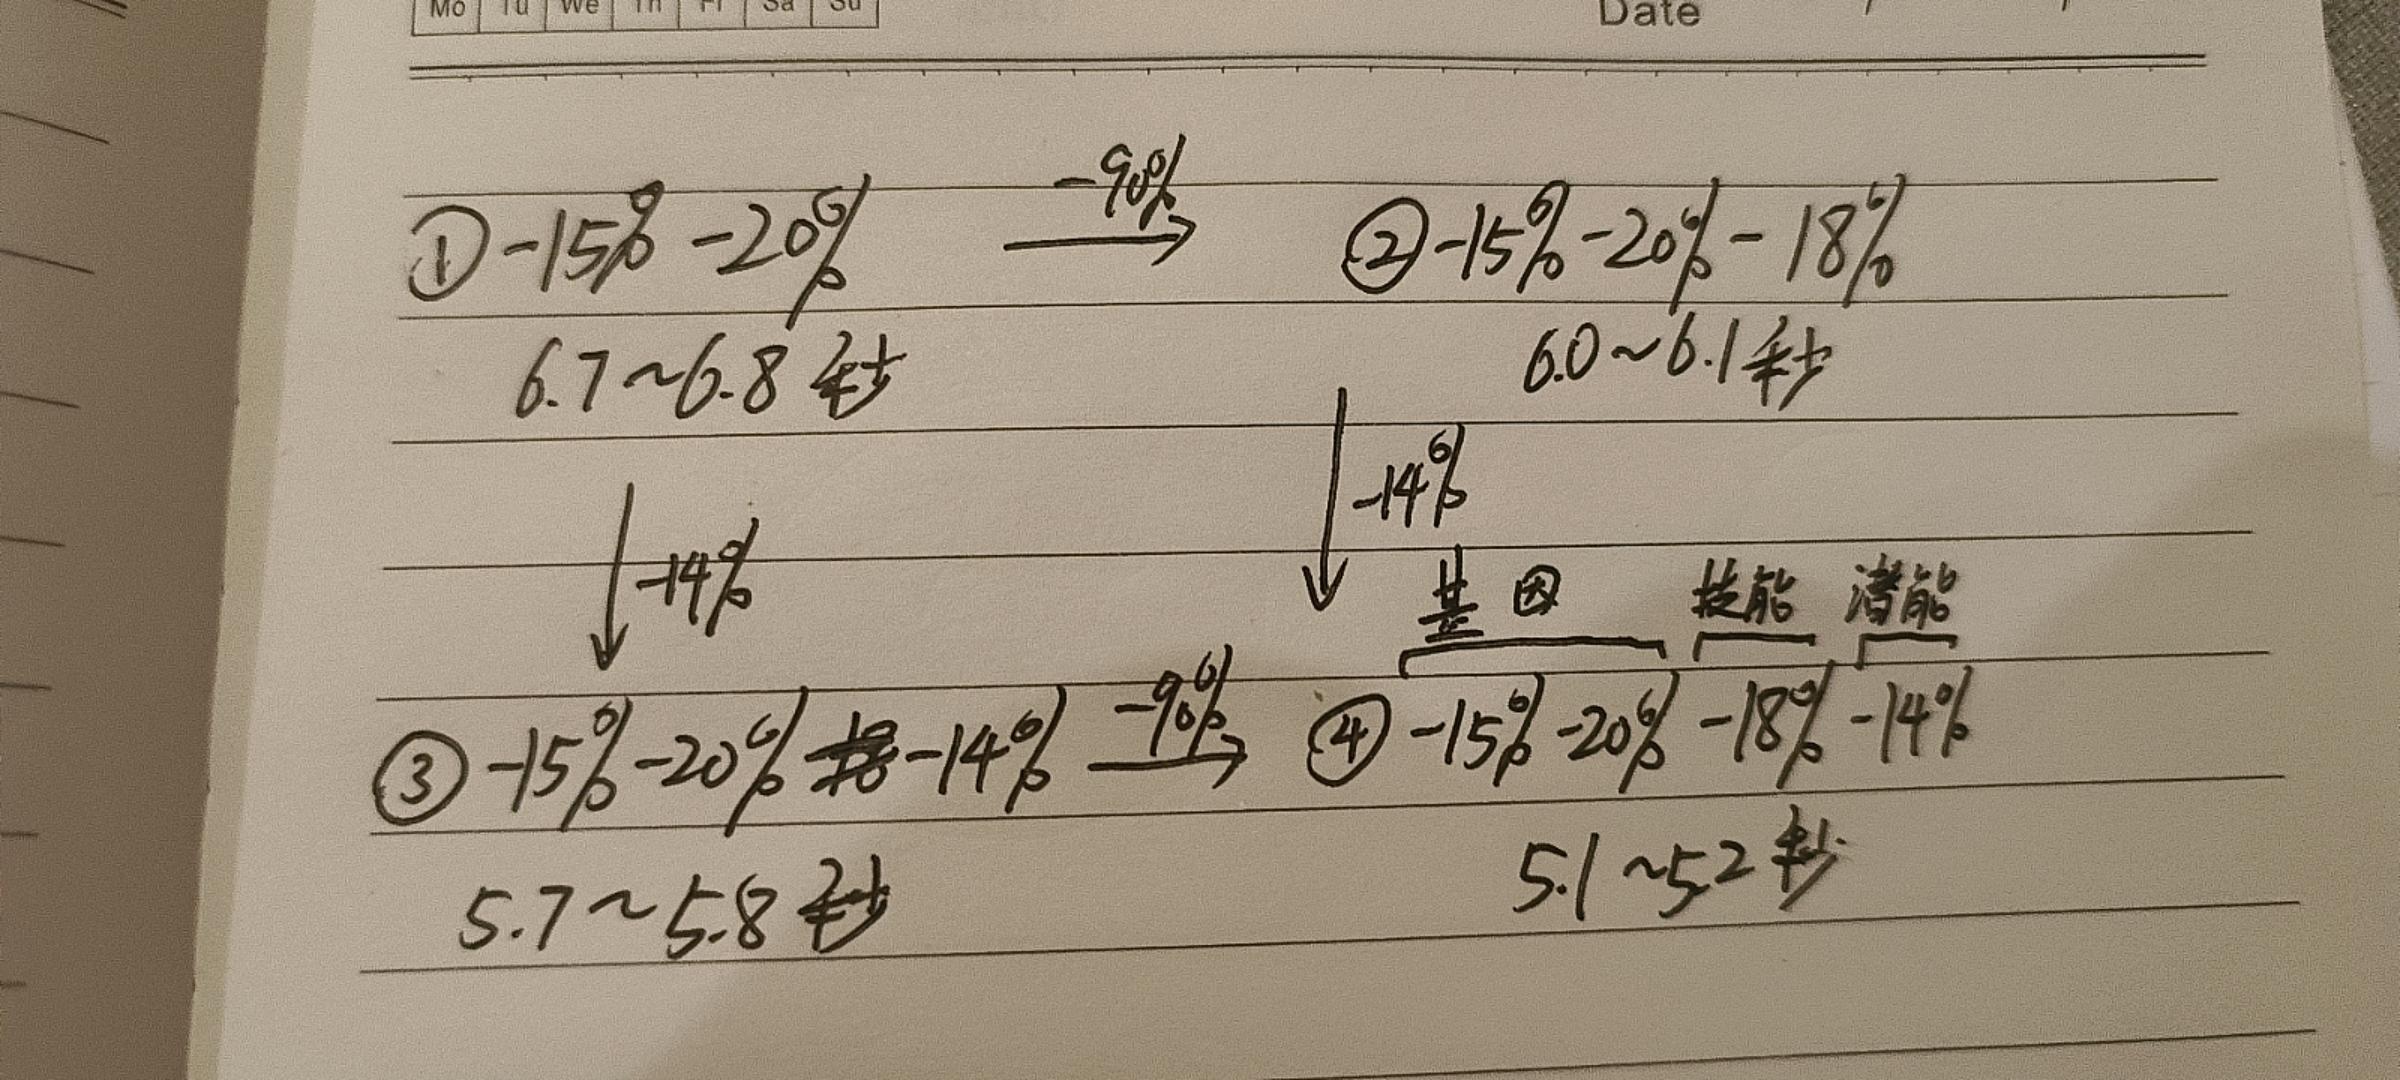 Mo Tu We Th Fr Sa Su Date / /
① -15% -20% -90% → ② -15% -20% - 18%
6.7~6.8 秒 6.0~6.1 秒
↓ -14% ↓ -14%
基因 技能 潜能
③ -15% -20% -14% -90% → ④ -15% -20% -18% -14%
5.7~5.8 秒 5.1~5.2 秒